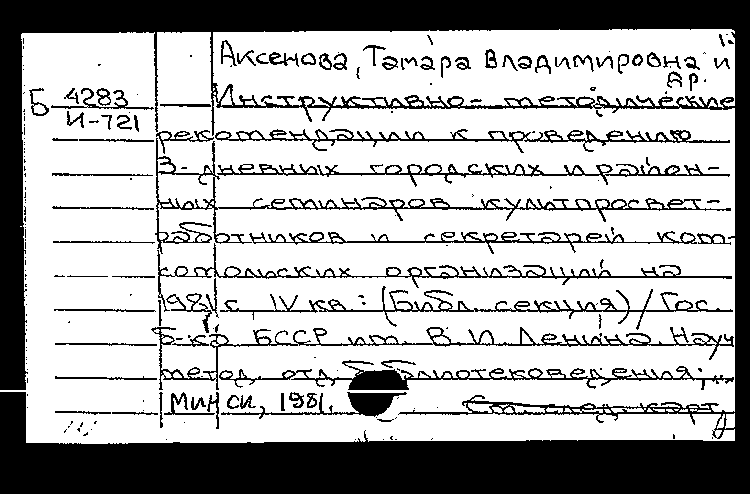 Аксенова, Тамара Владимировна и др.
Б 4283
И-721
Инструктивно-методические
рекомендации к проведению
3-дневных городских и район-
ных семинаров культпросвет-
работников и секретарей ком-
сомольских организаций на
1981 г. IV кв.: (Библ. секция) / Гос.
б-ка БССР им. В. И. Ленина. Науч.
метод. отд. библиотековедения;...
Минск, 1981.
См. след. карт.